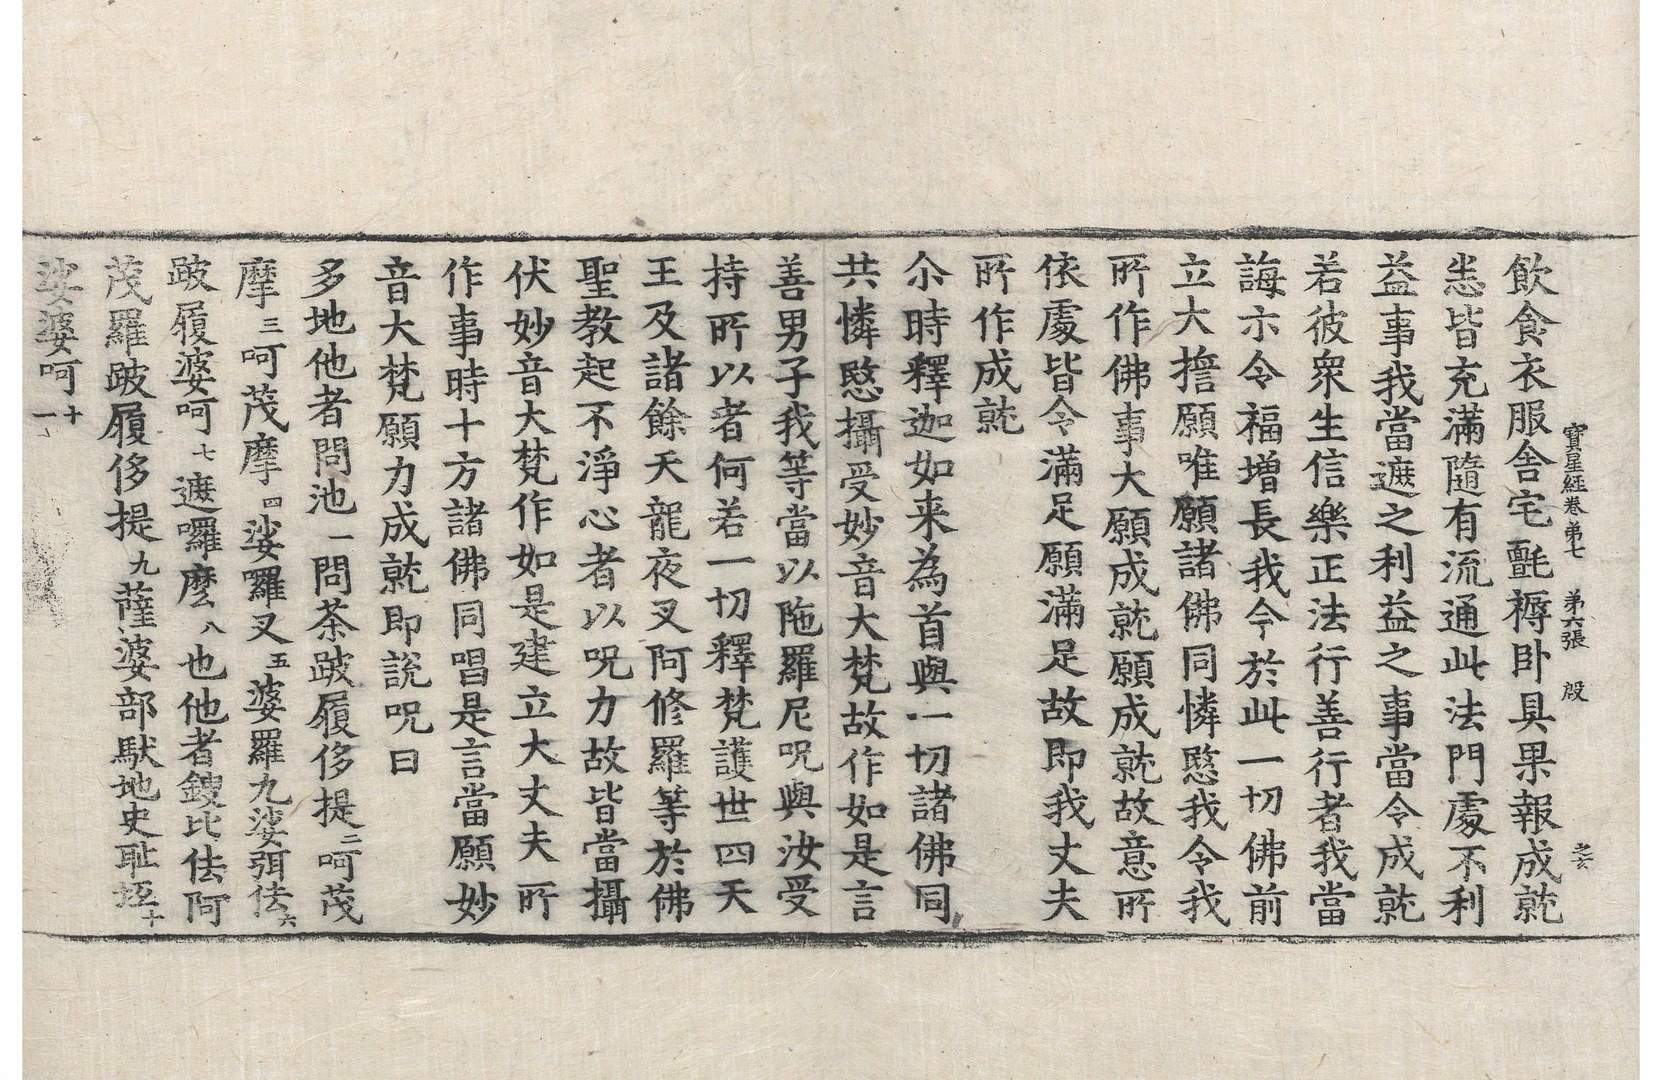 寶星經卷弟七 弟六張 殷
飲食衣服舍宅氍褥卧具果報成就
恙皆充滿隨有流通此法門處不利
益事我當遮之利益之事當令成就
若彼衆生信樂正法行善行者我當
誨示令福增長我今於此一切佛前
立大擔願唯願諸佛同憐愍我令我
所作佛事大願成就願成就故意所
依處皆令滿足願滿足故即我丈夫
所作成就
尒時釋迦如来為首與一切諸佛同
共憐愍攝受妙音大梵故作如是言
善男子我等當以陁羅尼呪與汝受
持所以者何若一切釋梵護世四天
王及諸餘天龍夜叉阿修羅等於佛
聖教起不淨心者以呪力故皆當攝
伏妙音大梵作如是建立大丈夫所
作事時十方諸佛同唱是言當願妙
音大梵願力成就即說呪曰
多地他者問池一問荼跛履侈提二呵茂
摩三呵茂摩四娑囉叉五婆羅九娑弭佉六
跛履婆呵七遮囉麼八也他者䭩比佉阿
茂羅跛履侈提九薩婆部馱地史耻㘿十
娑婆呵十一